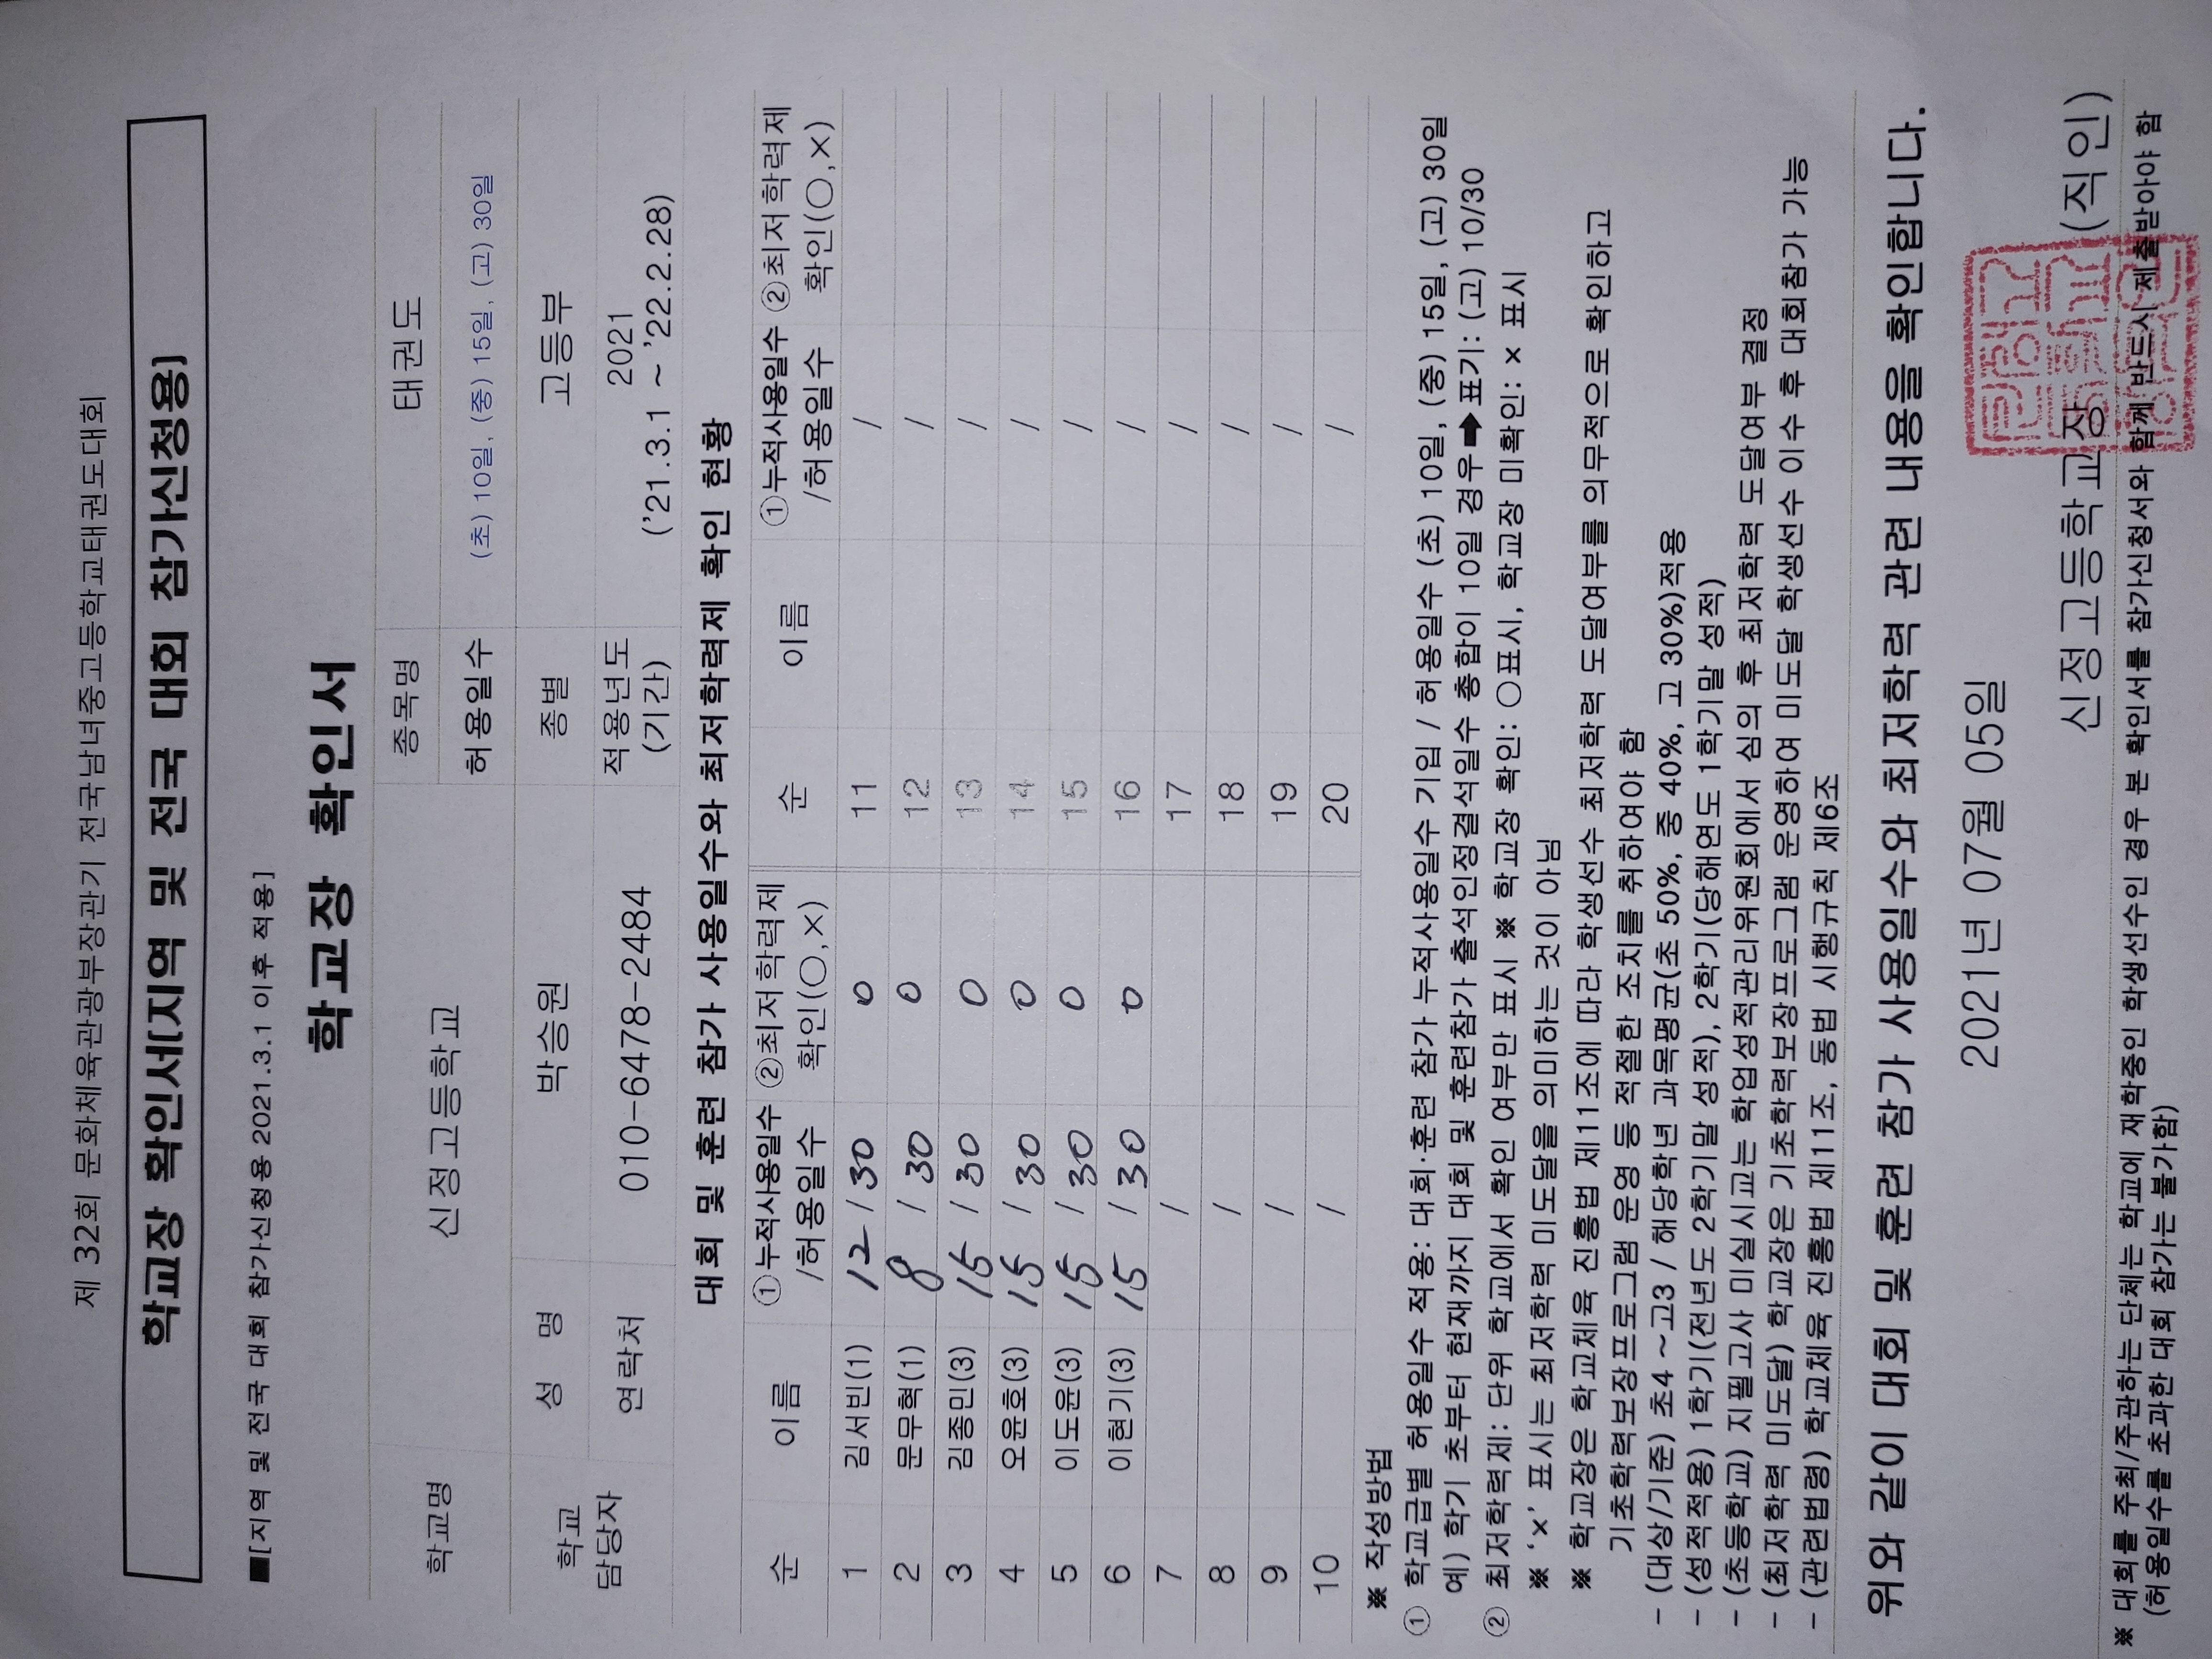 제 32회 문화체육관광부장관기 전국남녀중고등학교태권도대회
학교장 확인서(지역 및 전국 대회 참가신청용)
■[지역 및 전국 대회 참가신청용 2021.3.1 이후 적용]
학교장 확인서
학교명 신정고등학교 종목명 태권도
허용일수 (초) 10일, (중) 15일, (고) 30일
학교 담당자 성 명 박승원 종별 고등부
연락처 010-6478-2484 적용년도 (기간) 2021 ('21.3.1 ~ '22.2.28)
대회 및 훈련 참가 사용일수와 최저학력제 확인 현황
순 이름 ①누적사용일수 /허용일수 ②최저학력제 확인(○,×) 순 이름 ①누적사용일수 /허용일수 ②최저학력제 확인(○,×)
1 김서빈(1) 12 / 30 0 11 /
2 문무혁(1) 8 / 30 0 12 /
3 김종민(3) 15 / 30 0 13 /
4 오윤호(3) 15 / 30 0 14 /
5 이도윤(3) 15 / 30 0 15 /
6 이현기(3) 15 / 30 0 16 /
7 / 17 /
8 / 18 /
9 / 19 /
10 / 20 /
※ 작성방법
① 학교급별 허용일수 적용: 대회·훈련 참가 누적사용일수 기입 / 허용일수 (초) 10일, (중) 15일, (고) 30일
예) 학기 초부터 현재까지 대회 및 훈련참가 출석인정결석일수 총합이 10일 경우➡표기: (고) 10/30
② 최저학력제: 단위 학교에서 확인 여부만 표시 ※ 학교장 확인: ○표시, 학교장 미확인: × 표시
※ '×' 표시는 최저학력 미도달을 의미하는 것이 아님
※ 학교장은 학교체육 진흥법 제11조에 따라 학생선수 최저학력 도달여부를 의무적으로 확인하고
기초학력보장프로그램 운영 등 적절한 조치를 취하여야 함
- (대상/기준) 초4 ~고3 / 해당학년 과목평균(초 50%, 중 40%, 고 30%)적용
- (성적적용) 1학기(전년도 2학기말 성적), 2학기(당해연도 1학기말 성적)
- (초등학교) 지필고사 미실시교는 학업성적관리위원회에서 심의 후 최저학력 도달여부 결정
- (최저학력 미도달) 학교장은 기초학력보장프로그램 운영하여 미도달 학생선수 이수 후 대회참가 가능
- (관련법령) 학교체육 진흥법 제11조, 동법 시행규칙 제6조
위와 같이 대회 및 훈련 참가 사용일수와 최저학력 관련 내용을 확인합니다.
2021년 07월 05일
신정고등학교장 (직인)
※ 대회를 주최/주관하는 단체는 학교에 재학중인 학생선수인 경우 본 확인서를 참가신청서와 함께 반드시 제출받아야 함
(허용일수를 초과한 대회 참가는 불가함)